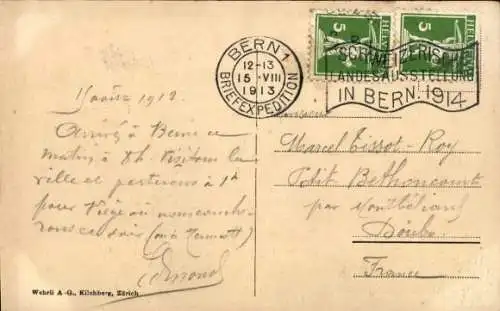 BERN 1
12-13
15 VIII
1913
BRIEFEXPEDITION
5 HELVETIA
5 HELVETIA
SCHWEIZERISCHE
LANDESAUSSTELLUNG
IN BERN. 1914
15 août 1913
Arrivé à Berne ce
matin à 8h. Visitons la
ville et partirons à 1h
pour Viège où nous couche-
rons ce soir (ou à Zermatt)
Edmond
Monsieur
Marcel Tissot-Roy
Petit Bethoncourt
par Montbéliard
Doubs
France
Wehrli A.-G., Kilchberg, Zürich